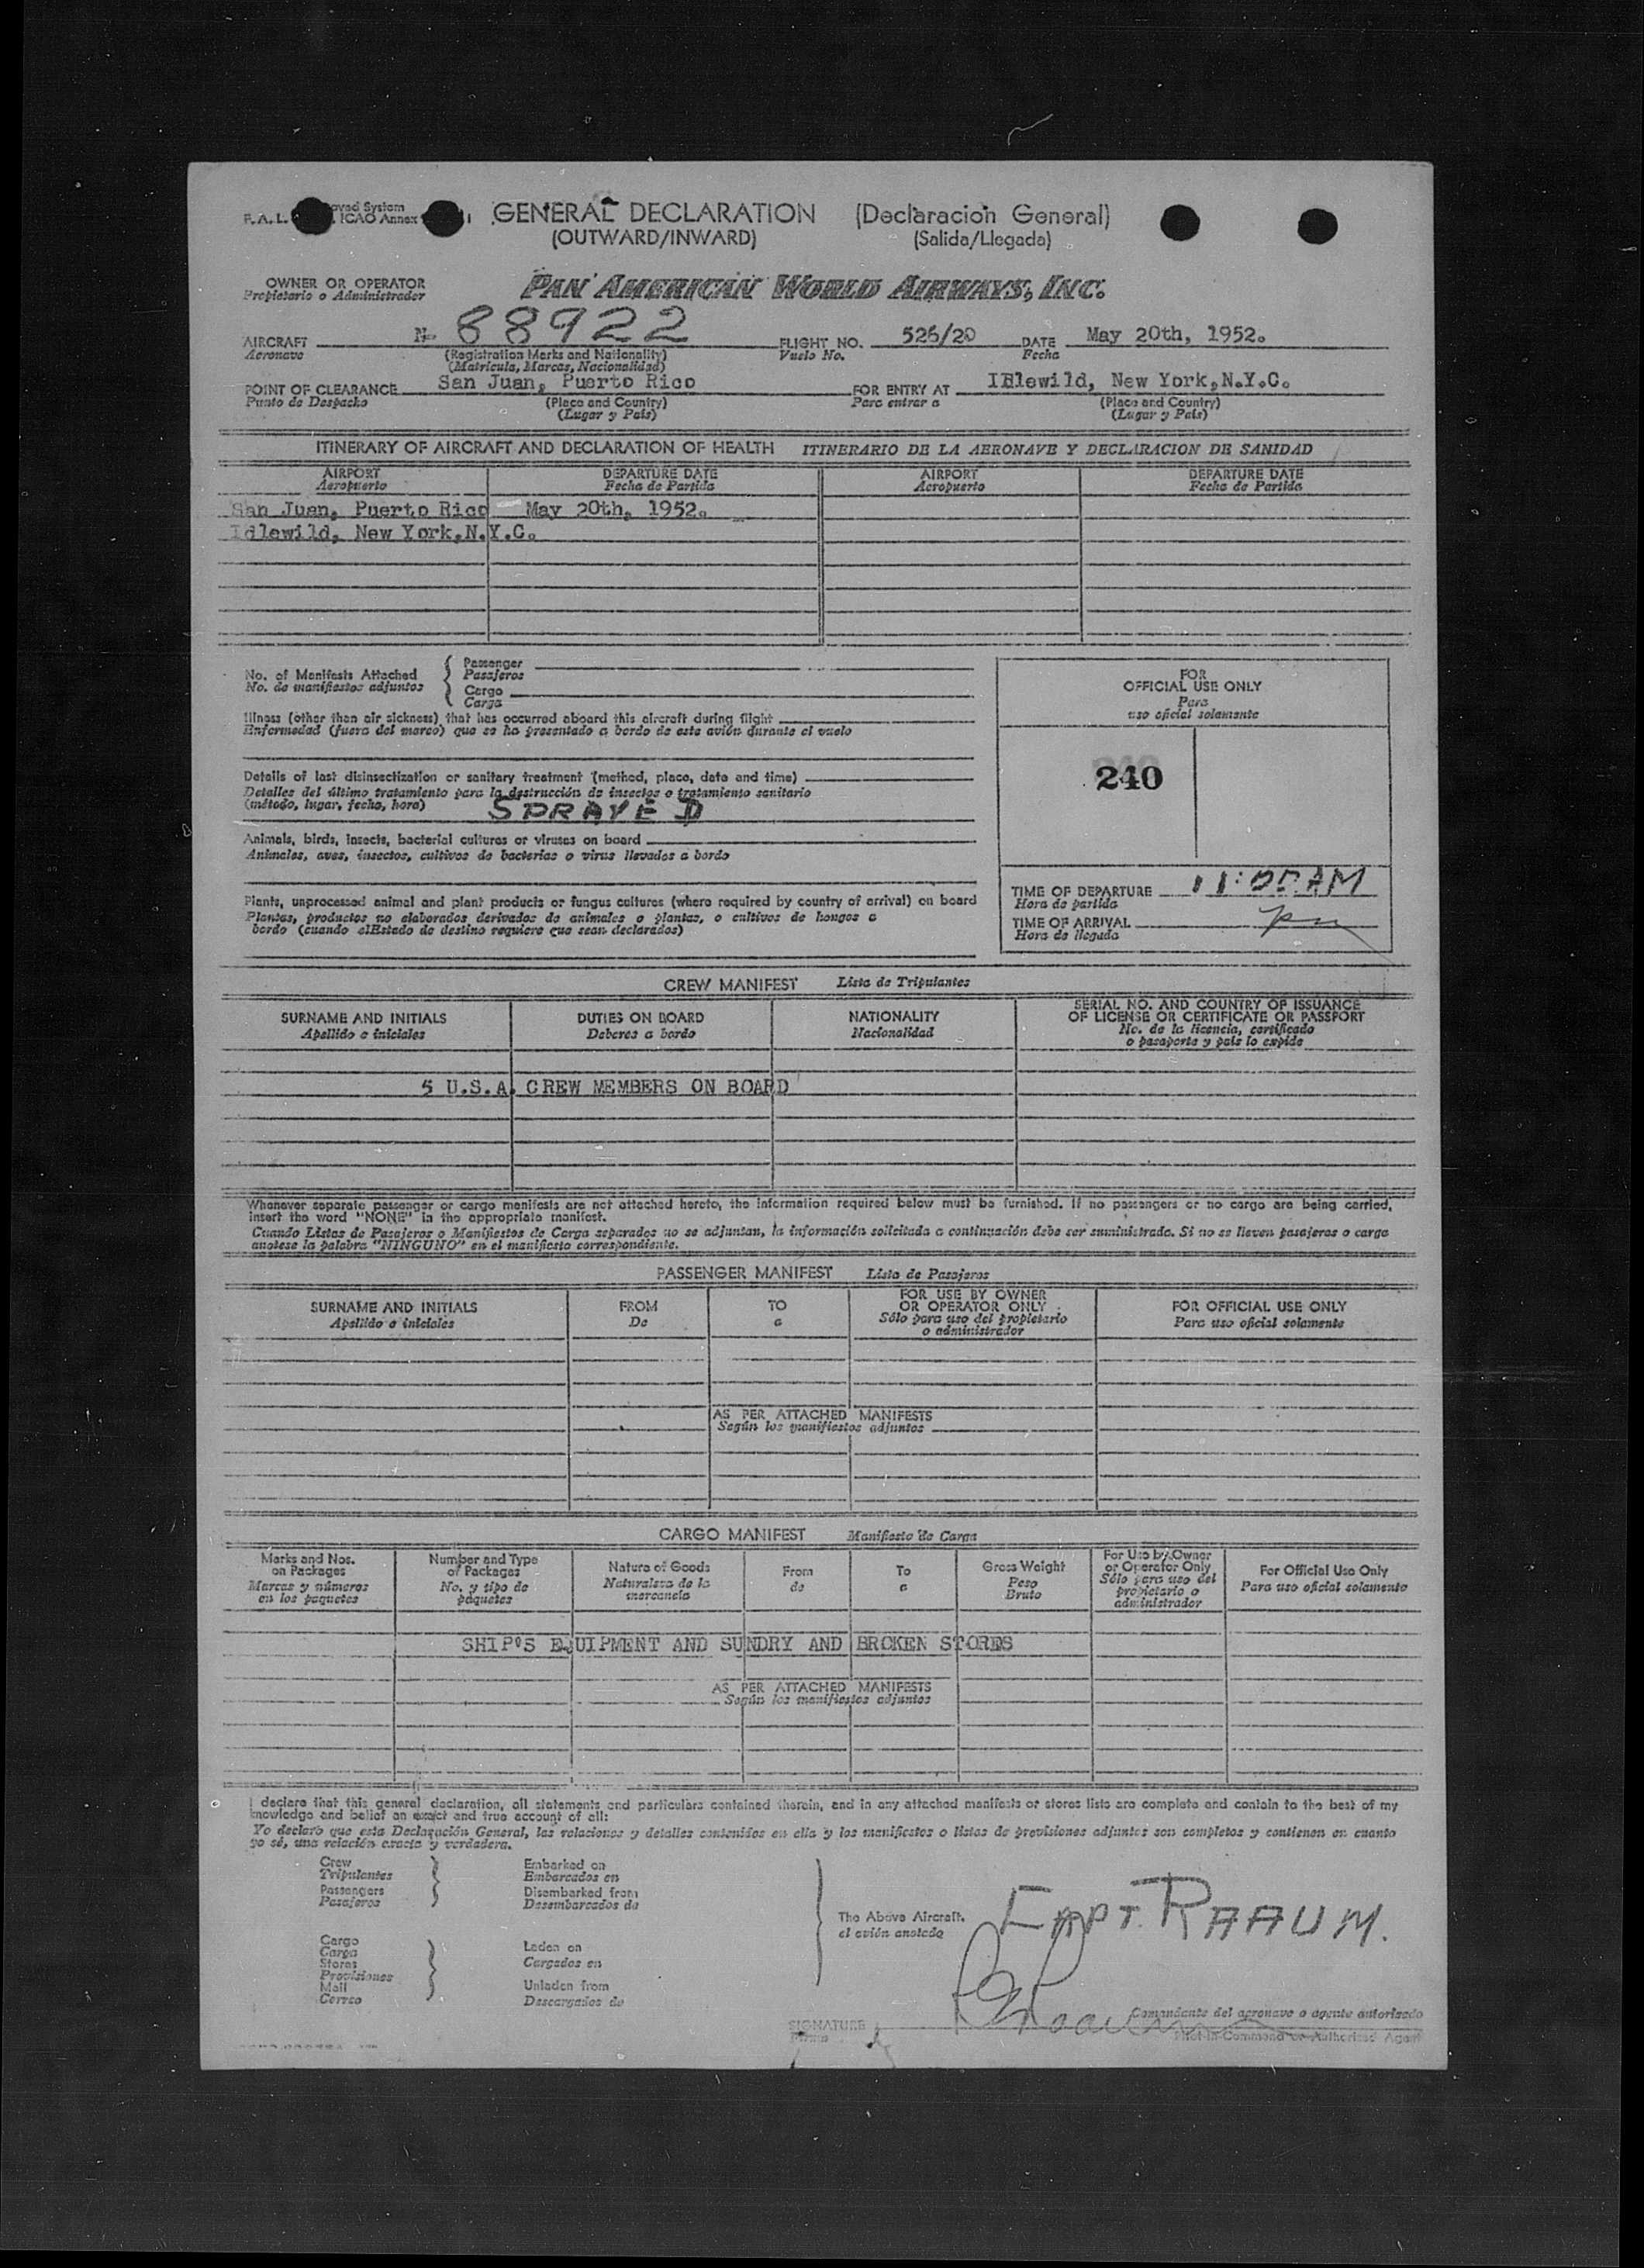 F. A. L. ICAO Annex
GENERAL DECLARATION (Declaración General)
(OUTWARD/INWARD) (Salida/Llegada)
OWNER OR OPERATOR PAN AMERICAN WORLD AIRWAYS, INC.
Propietario o Administrador
AIRCRAFT N- 88922 FLIGHT NO. 526/20 DATE May 20th, 1952.
Aeronave (Registration Marks and Nationality) Vuelo No. Fecha
(Matrícula, Marcas, Nacionalidad)
POINT OF CLEARANCE San Juan, Puerto Rico FOR ENTRY AT Idlewild, New York,N.Y.C.
Punto de Despacho (Place and Country) Para entrar a (Place and Country)
(Lugar y País) (Lugar y País)
ITINERARY OF AIRCRAFT AND DECLARATION OF HEALTH ITINERARIO DE LA AERONAVE Y DECLARACION DE SANIDAD
AIRPORT DEPARTURE DATE AIRPORT DEPARTURE DATE
Aeropuerto Fecha de Partida Aeropuerto Fecha de Partida
San Juan, Puerto Rico May 20th, 1952.
Idlewild, New York,N.Y.C.
No. of Manifests Attached Passenger
No. de manifiestos adjuntos Pasajeros
Cargo
Carga
Illness (other than air sickness) that has occurred aboard this aircraft during flight
Enfermedad (fuera del mareo) que se ha presentado a bordo de este avión durante el vuelo
Details of last disinsectization or sanitary treatment (method, place, date and time)
Detalles del último tratamiento para la destrucción de insectos o tratamiento sanitario
(método, lugar, fecha, hora) SPRAYED
Animals, birds, insects, bacterial cultures or viruses on board
Animales, aves, insectos, cultivos de bacterias o virus llevados a bordo
Plants, unprocessed animal and plant products or fungus cultures (where required by country of arrival) on board
Plantas, productos no elaborados derivados de animales o plantas, o cultivos de hongos a
bordo (cuando elEstado de destino requiere que sean declarados)
FOR
OFFICIAL USE ONLY
Para
uso oficial solamente
240
TIME OF DEPARTURE 11:05 AM
Hora de partida
TIME OF ARRIVAL
Hora de llegada
CREW MANIFEST Lista de Tripulantes
SURNAME AND INITIALS DUTIES ON BOARD NATIONALITY SERIAL NO. AND COUNTRY OF ISSUANCE
OF LICENSE OR CERTIFICATE OR PASSPORT
Apellido e iniciales Deberes a bordo Nacionalidad No. de la licencia, certificado
o pasaporte y país lo expide
5 U.S.A. CREW MEMBERS ON BOARD
Whenever separate passenger or cargo manifests are not attached hereto, the information required below must be furnished. If no passengers or no cargo are being carried,
insert the word "NONE" in the appropriate manifest.
Cuando Listas de Pasajeros o Manifiestos de Carga separados no se adjuntan, la información solicitada a continuación debe ser suministrada. Si no se lleven pasajeros o carga
anotese la palabra "NINGUNO" en el manifiesto correspondiente.
PASSENGER MANIFEST Lista de Pasajeros
SURNAME AND INITIALS FROM TO FOR USE BY OWNER
OR OPERATOR ONLY FOR OFFICIAL USE ONLY
Apellido e iniciales De a Sólo para uso del propietario
o administrador Para uso oficial solamente
AS PER ATTACHED MANIFESTS
Según los manifiestos adjuntos
CARGO MANIFEST Manifiesto de Carga
Marks and Nos.
on Packages
Marcas y números
en los paquetes
Number and Type
of Packages
No. y tipo de
paquetes
Nature of Goods
Naturaleza de la
mercancía
From
de
To
a
Gross Weight
Peso
Bruto
For Use by Owner
or Operator Only
Sólo para uso del
propietario o
administrador
For Official Use Only
Para uso oficial solamente
SHIP'S EQUIPMENT AND SUNDRY AND BROKEN STORES
AS PER ATTACHED MANIFESTS
Según los manifiestos adjuntos
I declare that this general declaration, all statements and particulars contained therein, and in any attached manifests or stores lists are complete and contain to the best of my
knowledge and belief an exact and true account of all:
Yo declaro que esta Declaración General, las relaciones y detalles contenidos en ella y los manifiestos o listas de provisiones adjuntas son completos y contienen en cuanto
yo sé, una relación exacta y verdadera.
Crew
Tripulantes
Passengers
Pasajeros
Embarked on
Embarcados en
Disembarked from
Desembarcados de
Cargo
Carga
Stores
Provisiones
Mail
Correo
Laden on
Cargados en
Unladen from
Descargados de
The Above Aircraft.
el avión anotado
CAPT. RAAUM.
Comandante del aeronave o agente autorizado
SIGNATURE
Firma
Pilot-in-Command or Authorized Agent